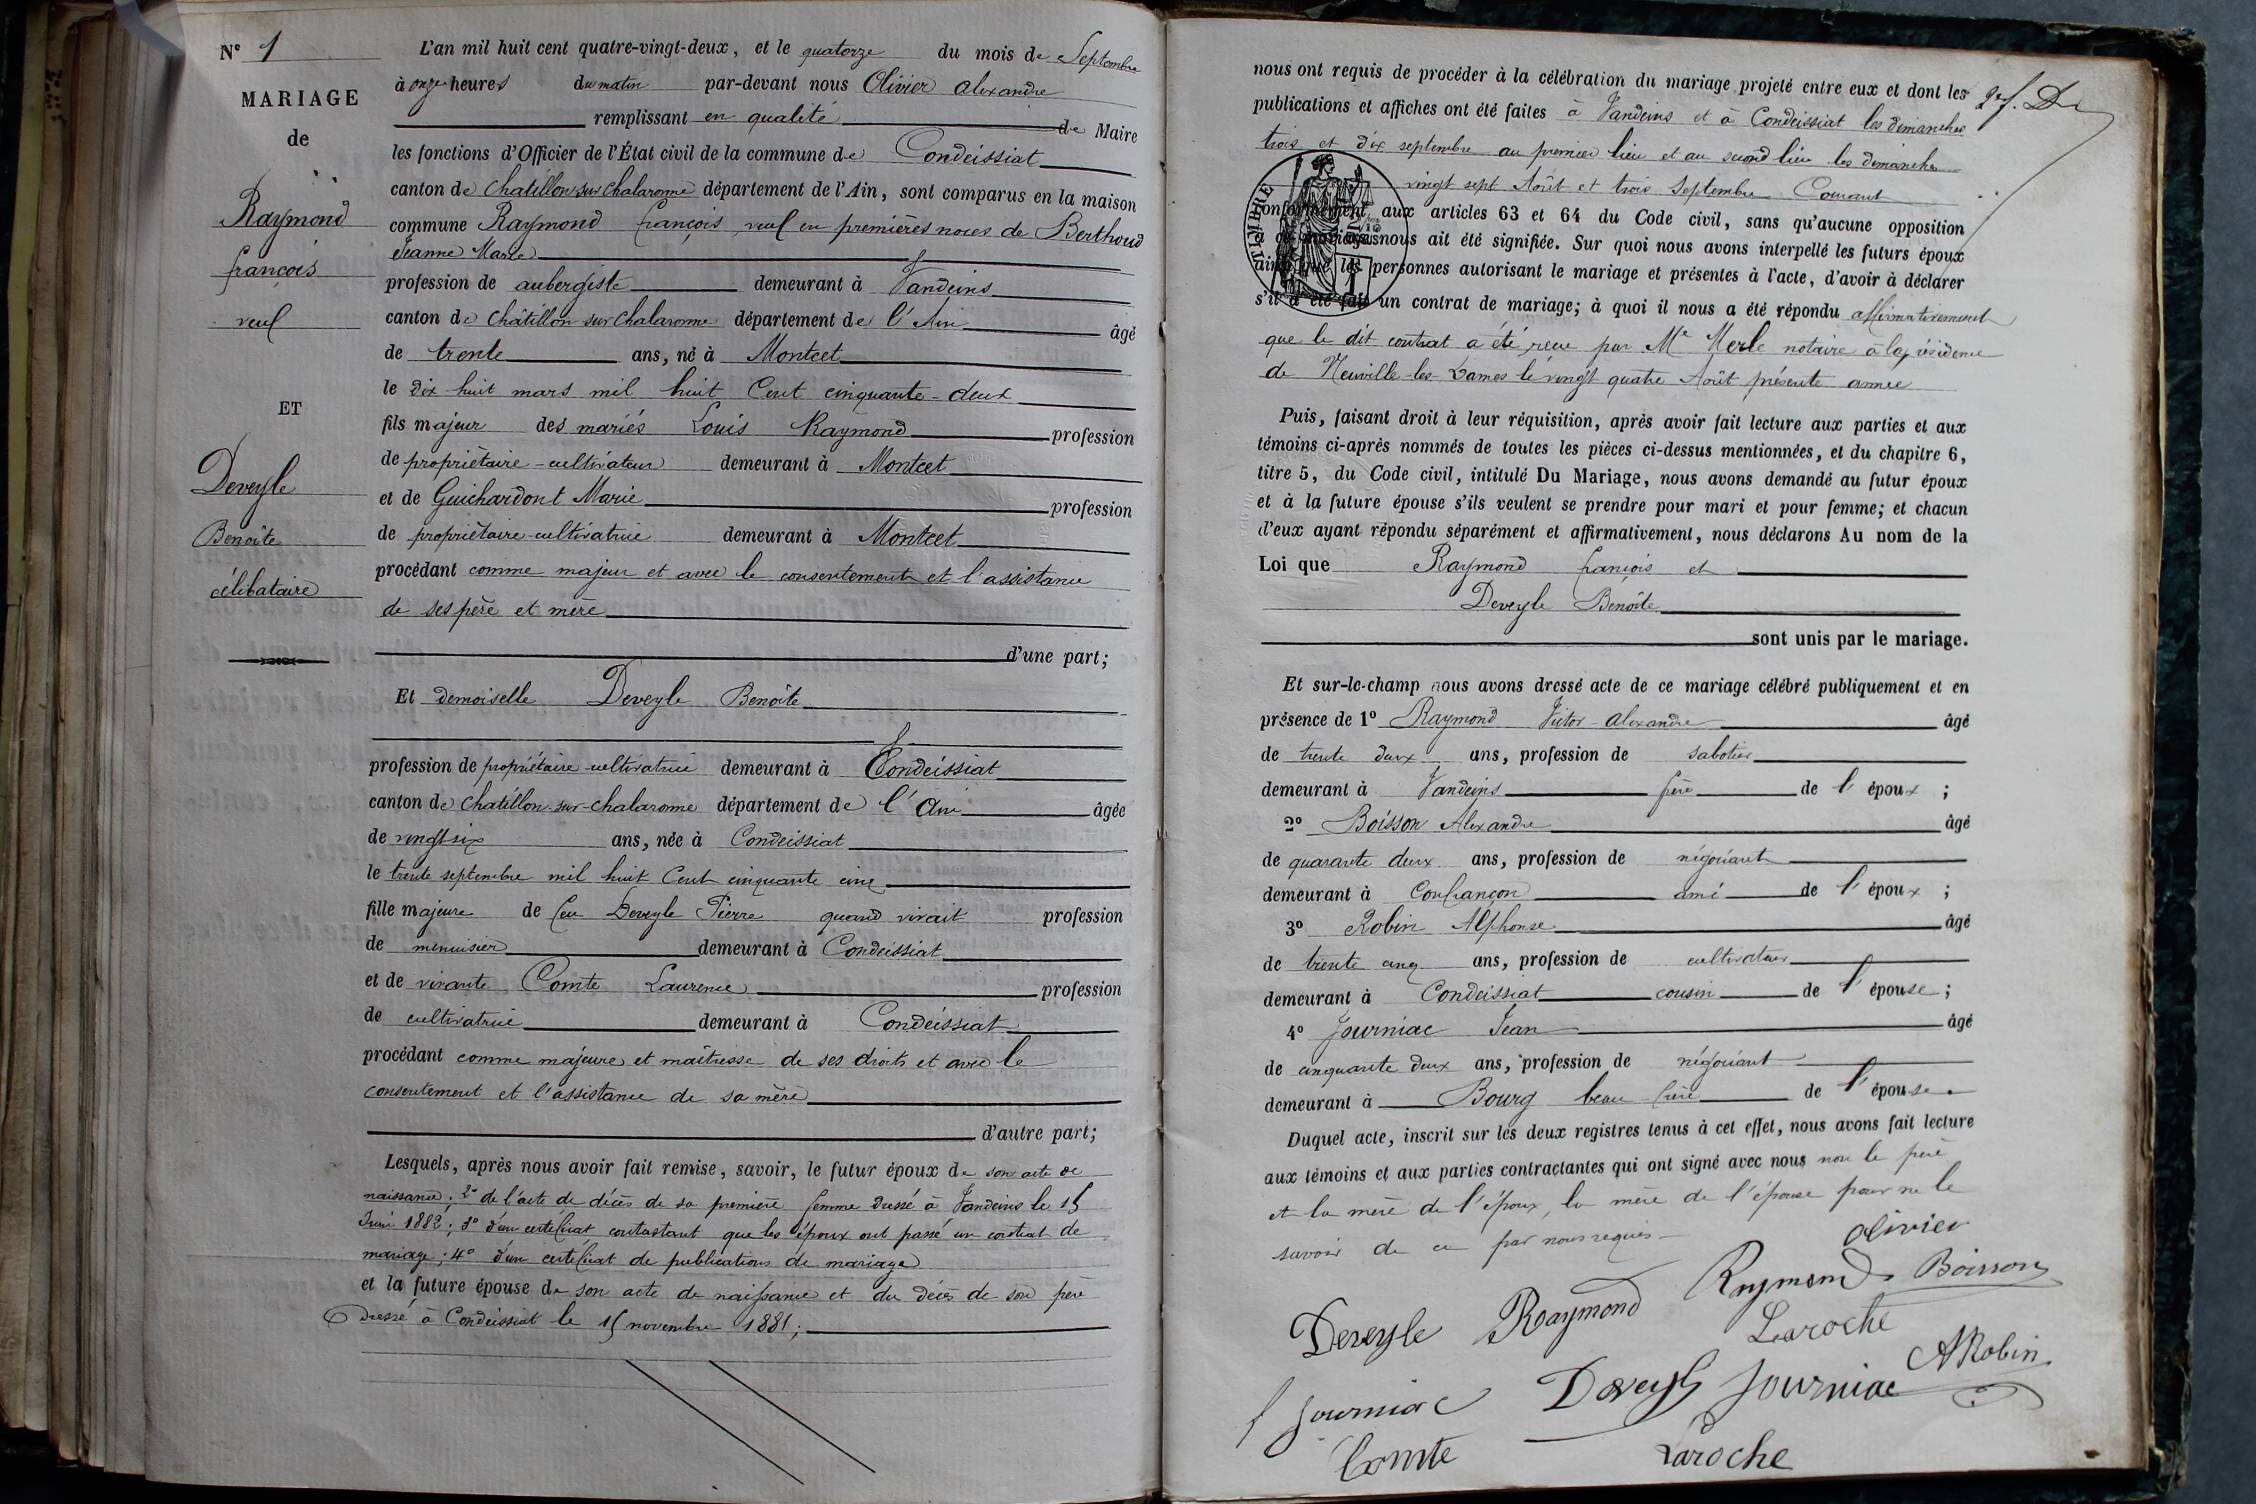 N° 1
MARIAGE
de
Raymond
françois
veuf
ET
Deveyle
Benoîte
célibataire
L'an mil huit cent quatre-vingt-deux, et le quatorze du mois de Septembre
à onze heures du matin par-devant nous Olivier alexandre
remplissant en qualité de Maire
les fonctions d'Officier de l'État civil de la commune de Condeissiat
canton de Chatillon sur Chalaronne département de l'Ain, sont comparus en la maison
commune Raymond françois veuf en premières noces de Berthoud
Jeanne Marie
profession de aubergiste demeurant à Vandeins
canton de Châtillon sur Chalaronne département de l'Ain âgé
de trente ans, né à Montcet
le dix huit mars mil huit Cent cinquante-deux
fils majeur des mariés Louis Raymond profession
de propriétaire-cultivateur demeurant à Montcet
et de Guichardont Marie profession
de propriétaire-cultivatrice demeurant à Montcet
procédant comme majeur et avec le consentement et l'assistance
de ses père et mère
d'une part;
Et demoiselle Deveyle Benoîte
profession de propriétaire cultivatrice demeurant à Condeissiat
canton de Chatillon-sur-chalaronne département de l'Ain âgée
de vingt six ans, née à Condeissiat
le trente septembre mil huit Cent cinquante cinq
fille majeure de feu Deveyle Pierre quand vivait profession
de menuisier demeurant à Condeissiat
et de vivante Comte Laurence profession
de cultivatrice demeurant à Condeissiat
procédant comme majeure et maîtresse de ses droits et avec le
consentement et l'assistance de sa mère
d'autre part;
Lesquels, après nous avoir fait remise, savoir, le futur époux de son acte de
naissance; 2° de l'acte de décès de sa première femme dressé à Vandeins le 15
Juin 1882; 3° d'un certificat contastant que les époux ont passé un contrat de
mariage; 4° d'un certificat de publications de mariage
et la future épouse de son acte de naissance et du décès de son père
Dressé à Condeissiat le 15 novembre 1881;
nous ont requis de procéder à la célébration du mariage projeté entre eux et dont les
publications et affiches ont été faites à Vandeins et à Condeissiat les dimanches
trois et dix septembre au premier lieu et au second lieu les dimanches
vingt sept Août et trois Septembre Courant
TIMBRE
conformément aux articles 63 et 64 du Code civil, sans qu'aucune opposition
à ce mariage nous ait été signifiée. Sur quoi nous avons interpellé les futurs époux
ainsi que les personnes autorisant le mariage et présentes à l'acte, d'avoir à déclarer
s'il a été fait un contrat de mariage; à quoi il nous a été répondu affirmativement
que le dit contrat a été reçu par Me Merle notaire à la résidence
de Neuville-les-Dames le vingt quatre Août présente année
Puis, faisant droit à leur réquisition, après avoir fait lecture aux parties et aux
témoins ci-après nommés de toutes les pièces ci-dessus mentionnées, et du chapitre 6,
titre 5, du Code civil, intitulé Du Mariage, nous avons demandé au futur époux
et à la future épouse s'ils veulent se prendre pour mari et pour femme; et chacun
d'eux ayant répondu séparément et affirmativement, nous déclarons Au nom de la
Loi que Raymond françois et
Deveyle Benoîte
sont unis par le mariage.
Et sur-le-champ nous avons dressé acte de ce mariage célébré publiquement et en
présence de 1° Raymond Victor-alexandre âgé
de trente deux ans, profession de sabotier
demeurant à Vandeins frère de l'époux;
2° Boisson Alexandre âgé
de quarante deux ans, profession de négociant
demeurant à Confrançon ami de l'époux;
3° Robin Alphonse âgé
de trente cinq ans, profession de cultivateur
demeurant à Condeissiat cousin de l'épouse;
4° Journiac Jean âgé
de cinquante deux ans, profession de négociant
demeurant à Bourg beau-frère de l'épouse.
Duquel acte, inscrit sur les deux registres tenus à cet effet, nous avons fait lecture
aux témoins et aux parties contractantes qui ont signé avec nous non le père
et la mère de l'époux, la mère de l'épouse pour ne le
savoir de ce par nous requis
Olivier
Deveyle Raymond Raymond Boisson
Laroche
ARobin
Journiac Deveyle Journiac
Comte Laroche